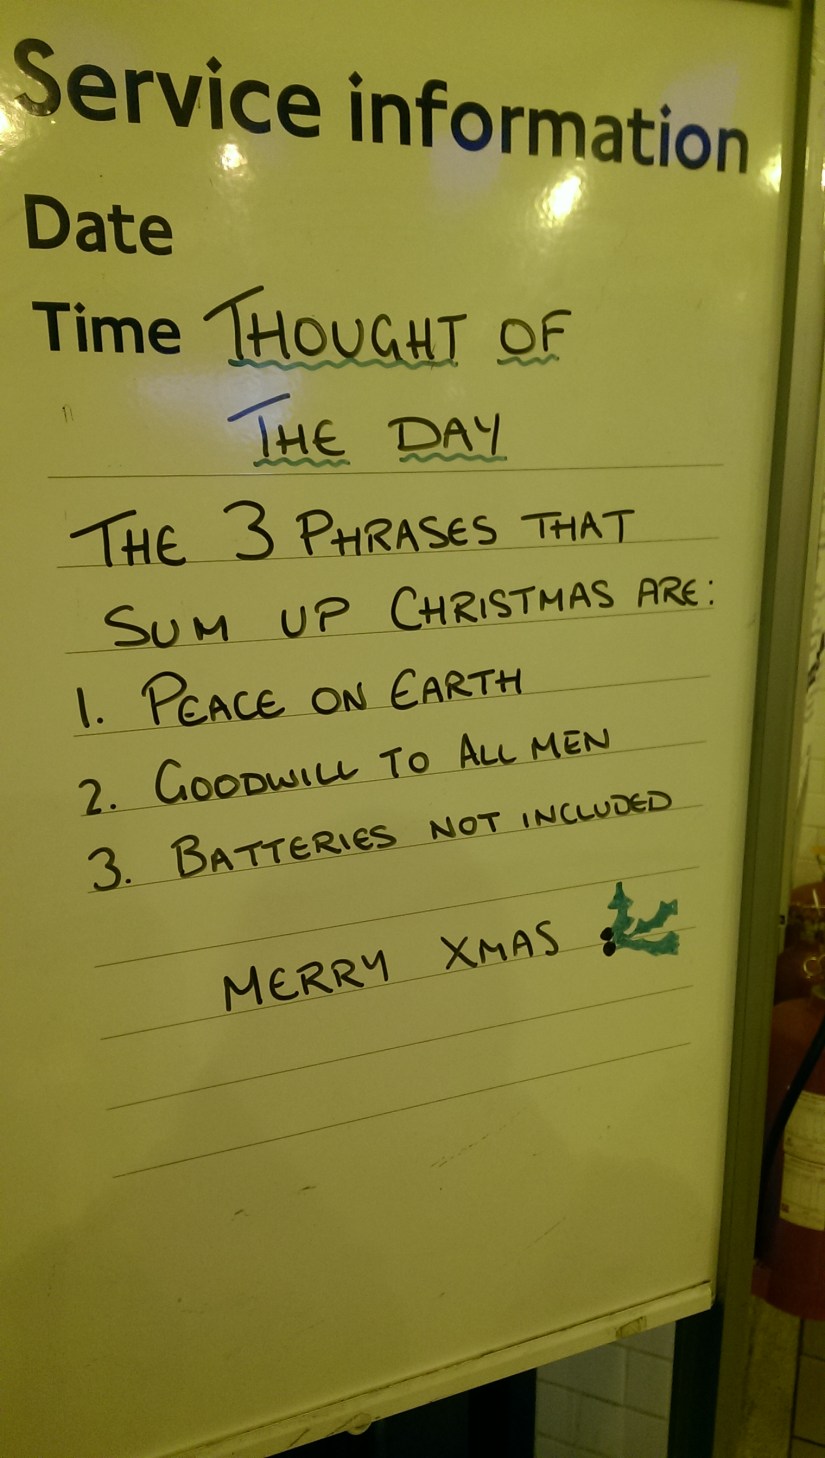 Service information
Date
Time THOUGHT OF
THE DAY
THE 3 PHRASES THAT
SUM UP CHRISTMAS ARE:
1. PEACE ON EARTH
2. GOODWILL TO ALL MEN
3. BATTERIES NOT INCLUDED
MERRY XMAS